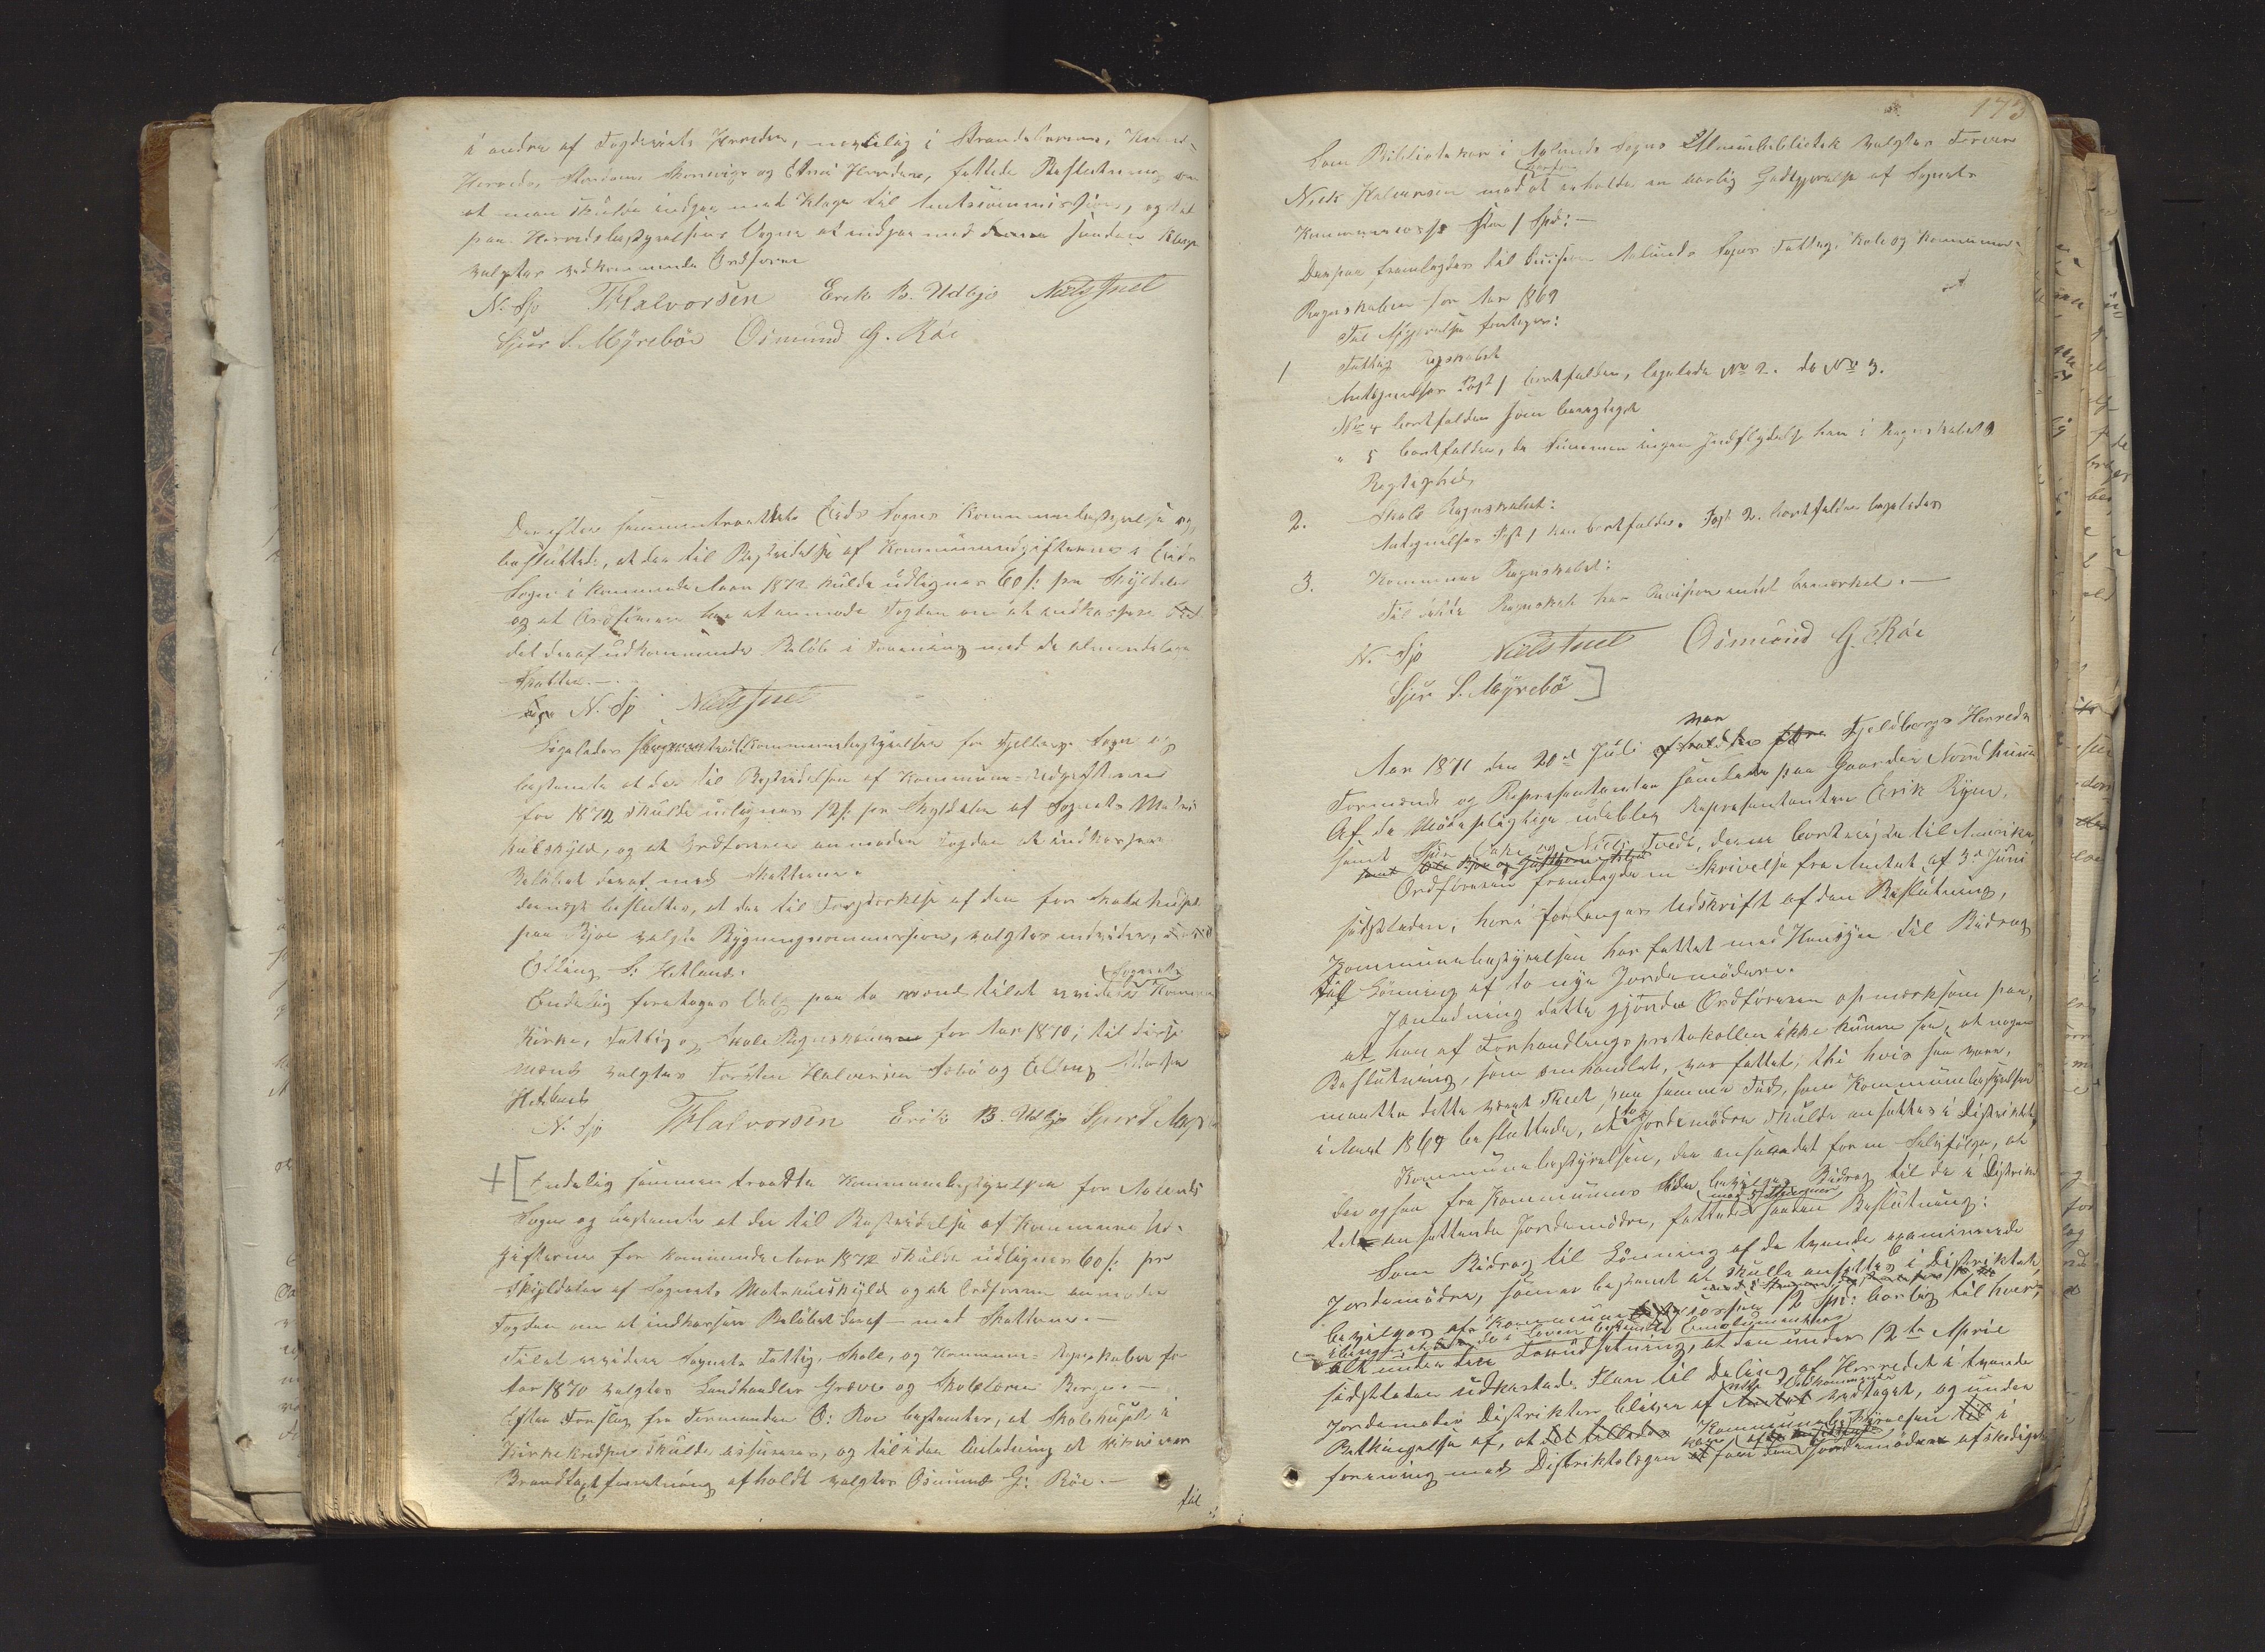 i andre af Fogderiets Herreder, navnlig i Strandebarms, Kvind-
Herreds, Skonevigs og Etne Herreder, fattede Beslutning om
at man skulde indgaa med Klage til Amtscommissionen, og til
paa Herredsbestyrelsens Vegne at indgaa med denne saadan Klage
valgtes vedkommende Ordfører
N. Sjo THalvorsen Erik B. Udbjo Niels Juel
Sjur S. Myrebøe Osmund G. Røe
Derefter sammentraadte Eids Sogns Kommunebestyrelse og
besluttede, at der til Bestridelse af Kommuneudgifterne i Eids
Sogn i kommende Aar 1872 skulde udlignes 60 s: pr Skylddaler
og at Ordføreren har at anmode Fogden om at indkassere
det deraf udkommende Beløb i Forening med de almindelige
Skatter.—
N. Sjo Niels Juel
Ligeledes sammentraadte Kommunebestyrelsen for Fjelberg Sogn og
bestemte at der til Bestridelsen af Kommune-Udgifterne
for 1872 skulde udlignes 12 s: pr Skylddaler af Sognets Matri-
kulskyld, og at Ordføreren anmoder Fogden at indkassere
Beløbet deraf med Skatterne.
Dernæst besluttes, at der til Forstærkelse af den for Skolehuset
paa Bjoe valgte Bygningscommission, valgtes endvidere,
Elling S: Hetland.
Endelig foretoges Valg paa to Mænd til at revidere Sognets Kommune
Kirke, Fattig og Skole Regnskaberne for Aar 1870; til disse
Mænd valgtes Torsten Halvorsen Sæbø og Elling
Hetland
N. Sjo THalvorsen Erik B. Udbjo Sjur S. Myr
+ [Endelig sammentraadte Kommunebestyrelsen for Aalunds
Sogn og bestemte at der til Bestridelse af Kommune Ud-
gifterne for kommende Aar 1872 skulde udlignes 60 s: pr
Skylddaler af Sognets Matrikulskyld og at Ordføreren anmoder
Fogden om at indkassere Beløbet deraf med Skatterne.—
Til at revidere Sognets Fattig, Skole, og Kommune-Regnskaber for
Aar 1870 valgtes Landhandler Græve og Skolelærer Berge.—
Efter Forslag fra Formanden O: Roe bestemtes, at Skolehuset i
Kirkekredsen skulde assureres, og til i den Anledning at
Brandtaxtforretning afholdt valgtes Osmund G: Røe.—
til
173
Som Bibliotekar i Aalunds Sogns Almuebibliotek valgtes Lærer
Niels Halvorsen mod at erholde en aarlig Godtgjørelse af Sognets
Kommunecasse stor 1 Spd:—
Derpaa fremlagdes til Decision Aalunds Sogns Fattig, Skole og Kommune-
Regnskaber for Aar 1869
Til Afgjørelse foretoges:
1 Fattig Regnskabet
Antegnelser Post 1 bortfalder, ligeledes No 2. do No 3.
No 4 bortfalder som berigtiget
" 5 bortfalder, da Summen ingen Indflydelse har i Regnskabets
Rigtighed,
2. Skole Regnskabet:
Antegnelses Post 1 kan bortfalde. Post 2. bortfalder ligeledes
3. Kommune Regnskabet:
Til dette Regnskab har Revisor intet bemærket.—
N. Sjo Niels Juel Osmund G. Røe
Sjur S. Myrebø]
Aar 1871 den 20de Juli var Fjelbergs Herreds
Formænd og Repræsentanter samlede paa Gaarden Nordhuus
Af de Mødepligtige udebleve Repræsentanten Erik Ryen,
samt og Niels Tvedt, denne bortreist til Amerika
Ordføreren fremlagde en Skrivelse fra Amtet af 3de Juni
sidstleden, hvori forlanges Udskrift af den Beslutning,
Kommunebestyrelsen har fattet med Hensyn til Bidrag
til Lønning af to nye Jordemødre.
I Anledning dette gjorde Ordføreren opmærksom paa,
at han af Forhandlingsprotokollen ikke kunne see, at nogen
Beslutning, som omhandlet, var fattet; thi hvis saa var,
maatte dette være skeet paa samme Tid, som Kommunebestyrelsen
i Marts 1869 besluttede, at to Jordemødre skulde ansættes i Distriktet,
Kommunebestyrelsen, der ansaa det for en Selvfølge, at
der ogsaa fra Kommunens Side bevilges Bidrag til de i Distrik-
tet ansættende Jordemødre, fattede mod 3 Stemmer saadan Beslutning:
Som Bidrag til Lønning af de tvende examinerede
Jordemødre, som er bestemt at skulle ansættes i Distriktet,
bevilges af Kommunecassen 12 Spd: aarlig til hver,
alt under den Forudsætning, at den under 12te April
sidstleden udkastede Plan til Deling af Herredet i tvende
Jordemoder Distrikter bliver af Vedkommende vedtaget, og under
Betingelse af, at Kommunebestyrelsen i
forening med Distriktslægen kan Jordemødre afskedige